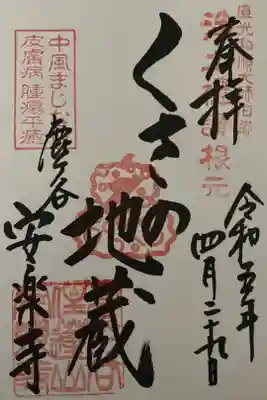 奉拝
根元
令和五年
四月二十九日
くさの
地蔵
中風まじない
皮膚病 腫瘍平癒
鹿谷
安楽寺